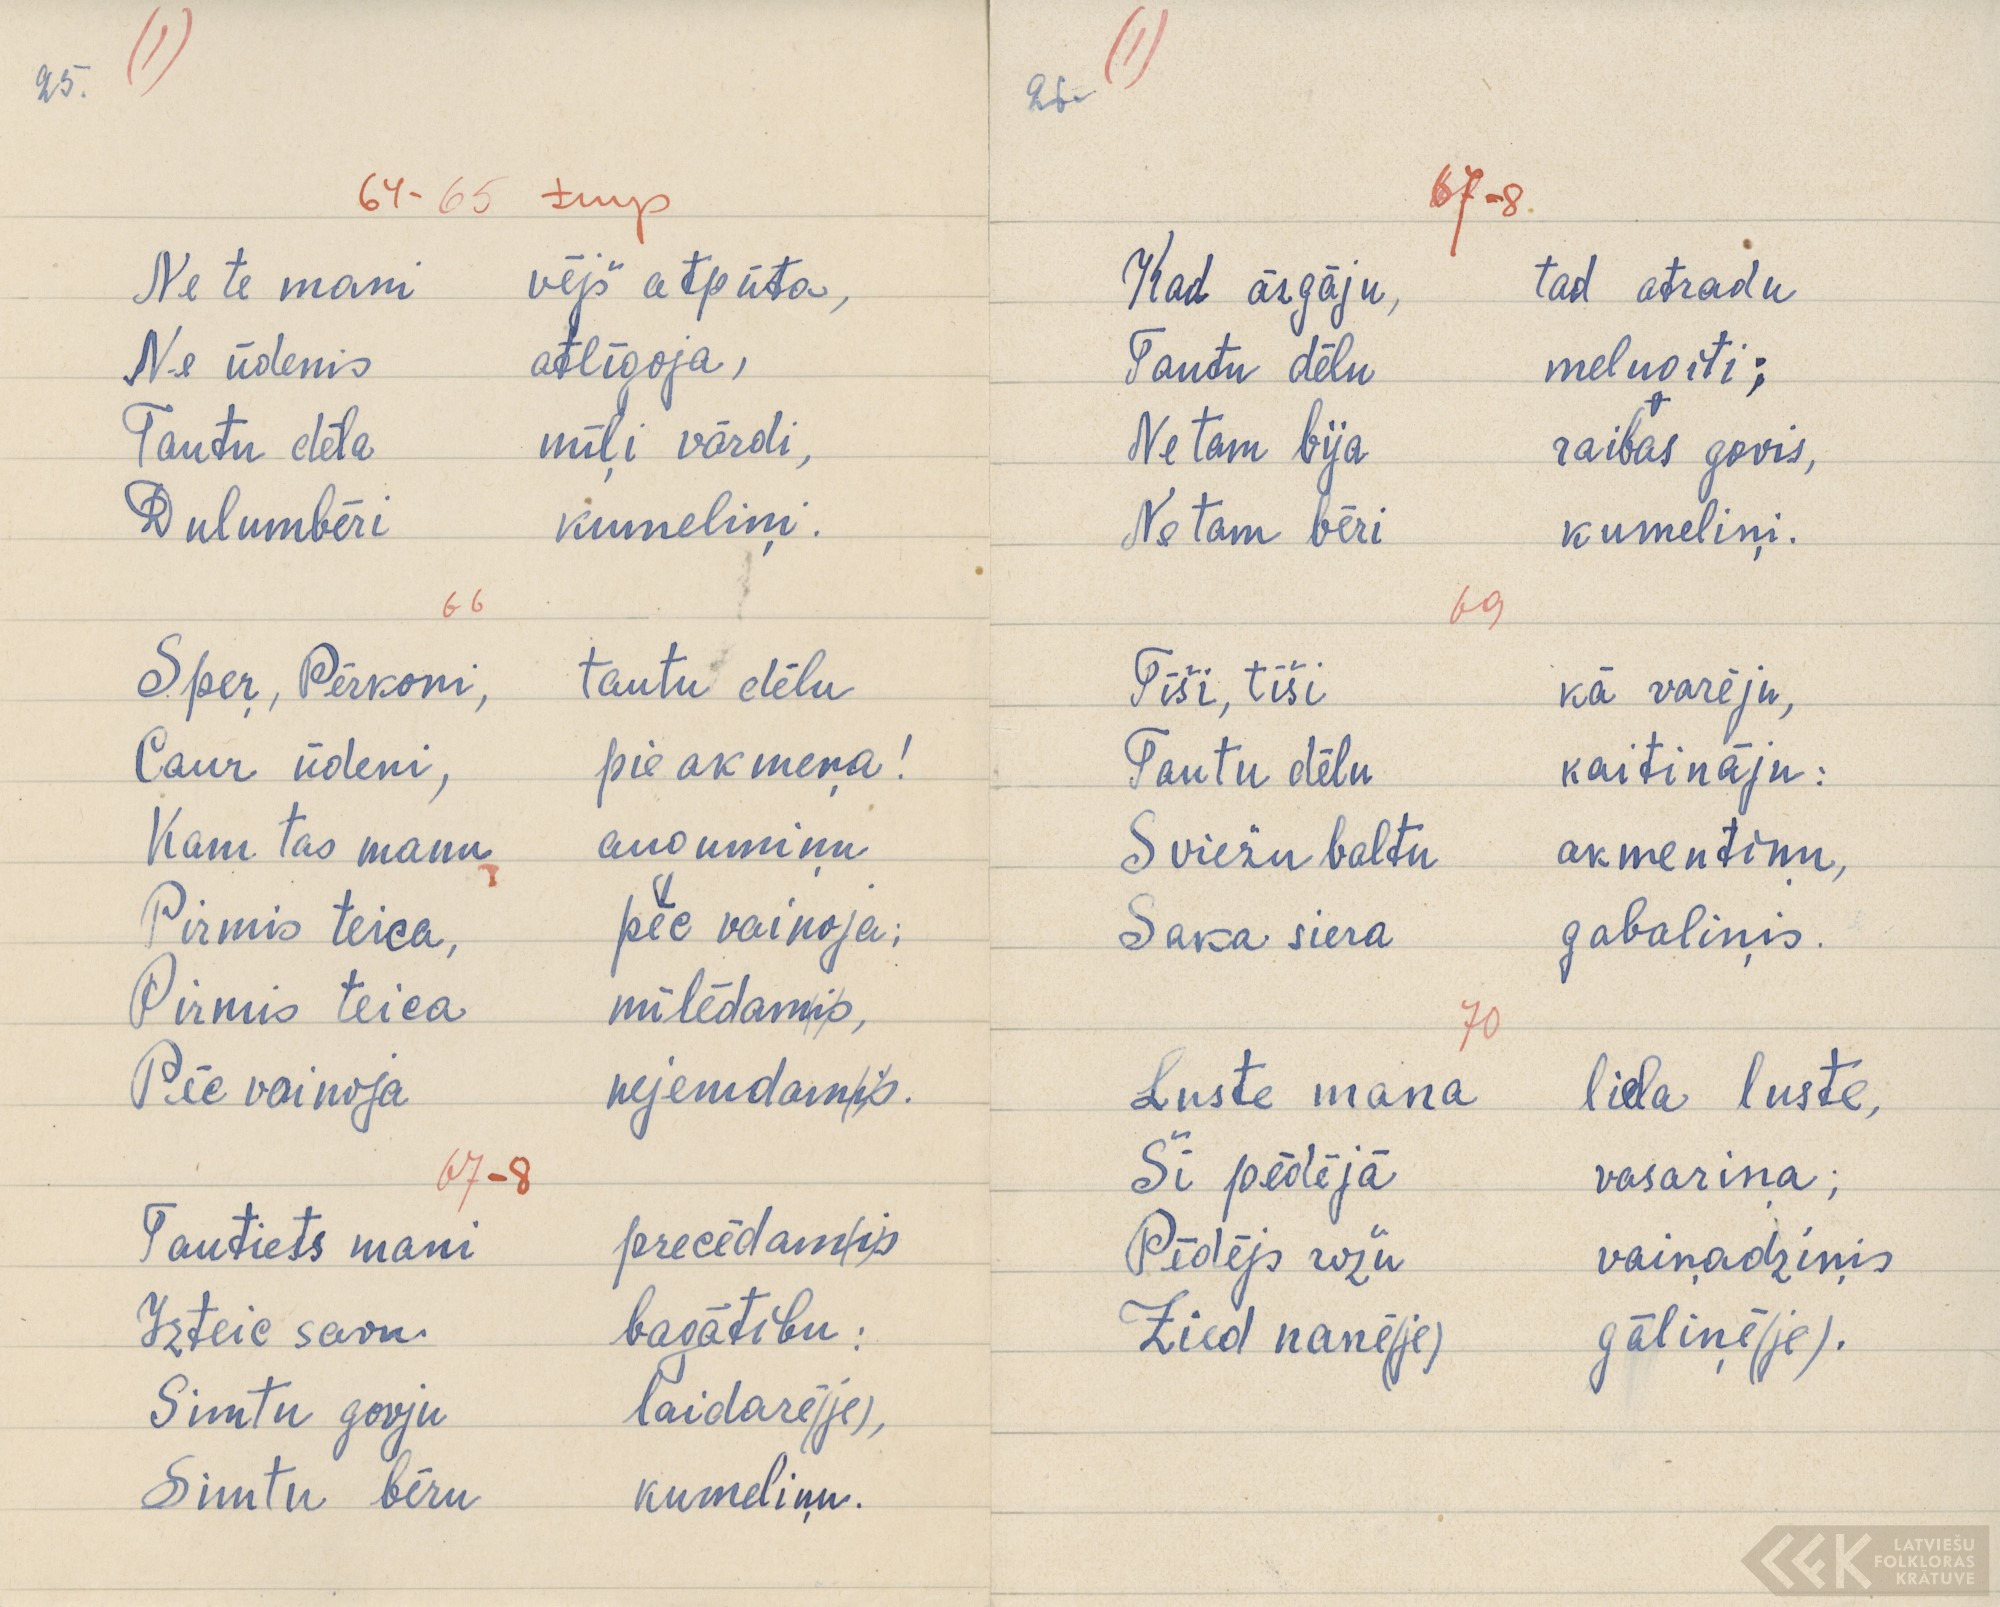 25. (1)
64-65
Ne te mani vējš atpūta,
Ne ūdenis atlīgoja,
Tautu dēla mīļi vārdi,
Dulumbēri kumeliņi.
66
Sper, Pērkoni, tautu dēlu
Caur ūdeni, pie akmeņa!
Kam tas manu augumiņu
Pirmis teica, pēc vainoja;
Pirmis teica mīlēdamis,
Pēc vainoja nejemdamis.
67-8
Tautiets mani precēdamis
Izteic savu bagātību:
Simtu govju laidarē(je),
Simtu bēru kumeliņu.
26. (1)
67-8
Kad āzgāju, tad atradu
Tautu dēlu meluoti;
Ne tam bija raibas govis,
Ne tam bēri kumeliņi.
69
Tīši, tīši kā varēju,
Tautu dēlu kaitināju:
Sviežu baltu akmentiņu,
Saka siera gabaliņis.
70
Luste mana liela luste,
Šī pēdējā vasariņa;
Pēdējs rožu vaiņadziņis
Zied nanē(je) gāliņē(je).
LATVIEŠU
FOLKLORAS
KRĀTUVE